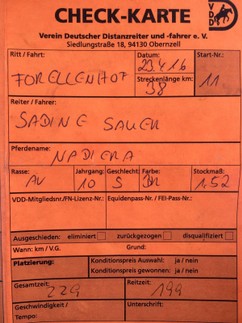 CHECK-KARTE
VDD
Verein Deutscher Distanzreiter und -fahrer e. V.
Siedlungstraße 18, 94130 Obernzell
Ritt / Fahrt: Datum: Start-Nr.
FORELLENHOF 23.4.16 11
Streckenlänge km:
38
Reiter / Fahrer:
SADINE SAUER
Pferdename:
NADIERA
Rasse: Jahrgang: Geschl.: Farbe: Stockmaß:
AV 10 S 1.52
VDD-Mitgliedsnr./FN-Lizenz-Nr.: Equidenpass-Nr. / FEI-Pass-Nr.:
Ausgeschieden: eliminiert zurückgezogen disqualifiziert
Wann: km / V.G. Grund:
Platzierung: Konditionspreis Auswahl: ja / nein
Konditionspreis gewonnen: ja / nein
Gesamtzeit: Reitzeit:
229 199
Geschwindigkeit / Unterschrift:
Tempo: